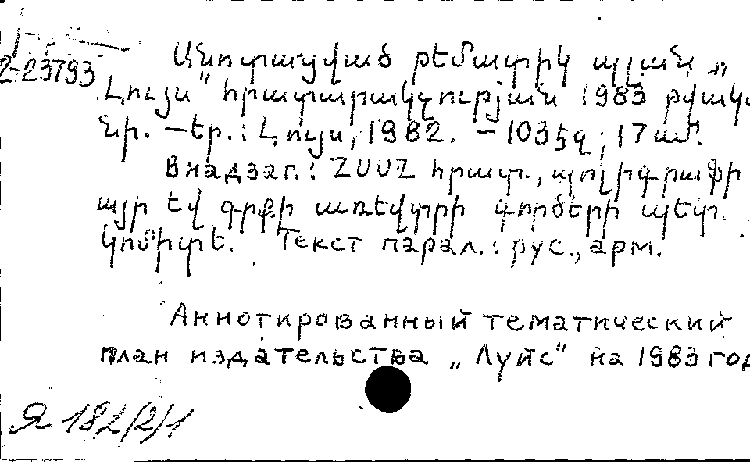 2-23793
Անոտացված թեմատիկ պլան „
Լույս" հրատարակչության 1983 թվակա
նի. – Եր.: Լույս, 1982. – 103էջ; 17սմ.
В надзаг.: ՀՍՍՀ հրատ., պոլիգրաֆի
այի եվ գրքի առեվտրի գործերի պետ.
կոմիտե. Текст парал.: рус., арм.
Аннотированный тематический
план издательства „Луйс" на 1983 год
Я 182/2/1